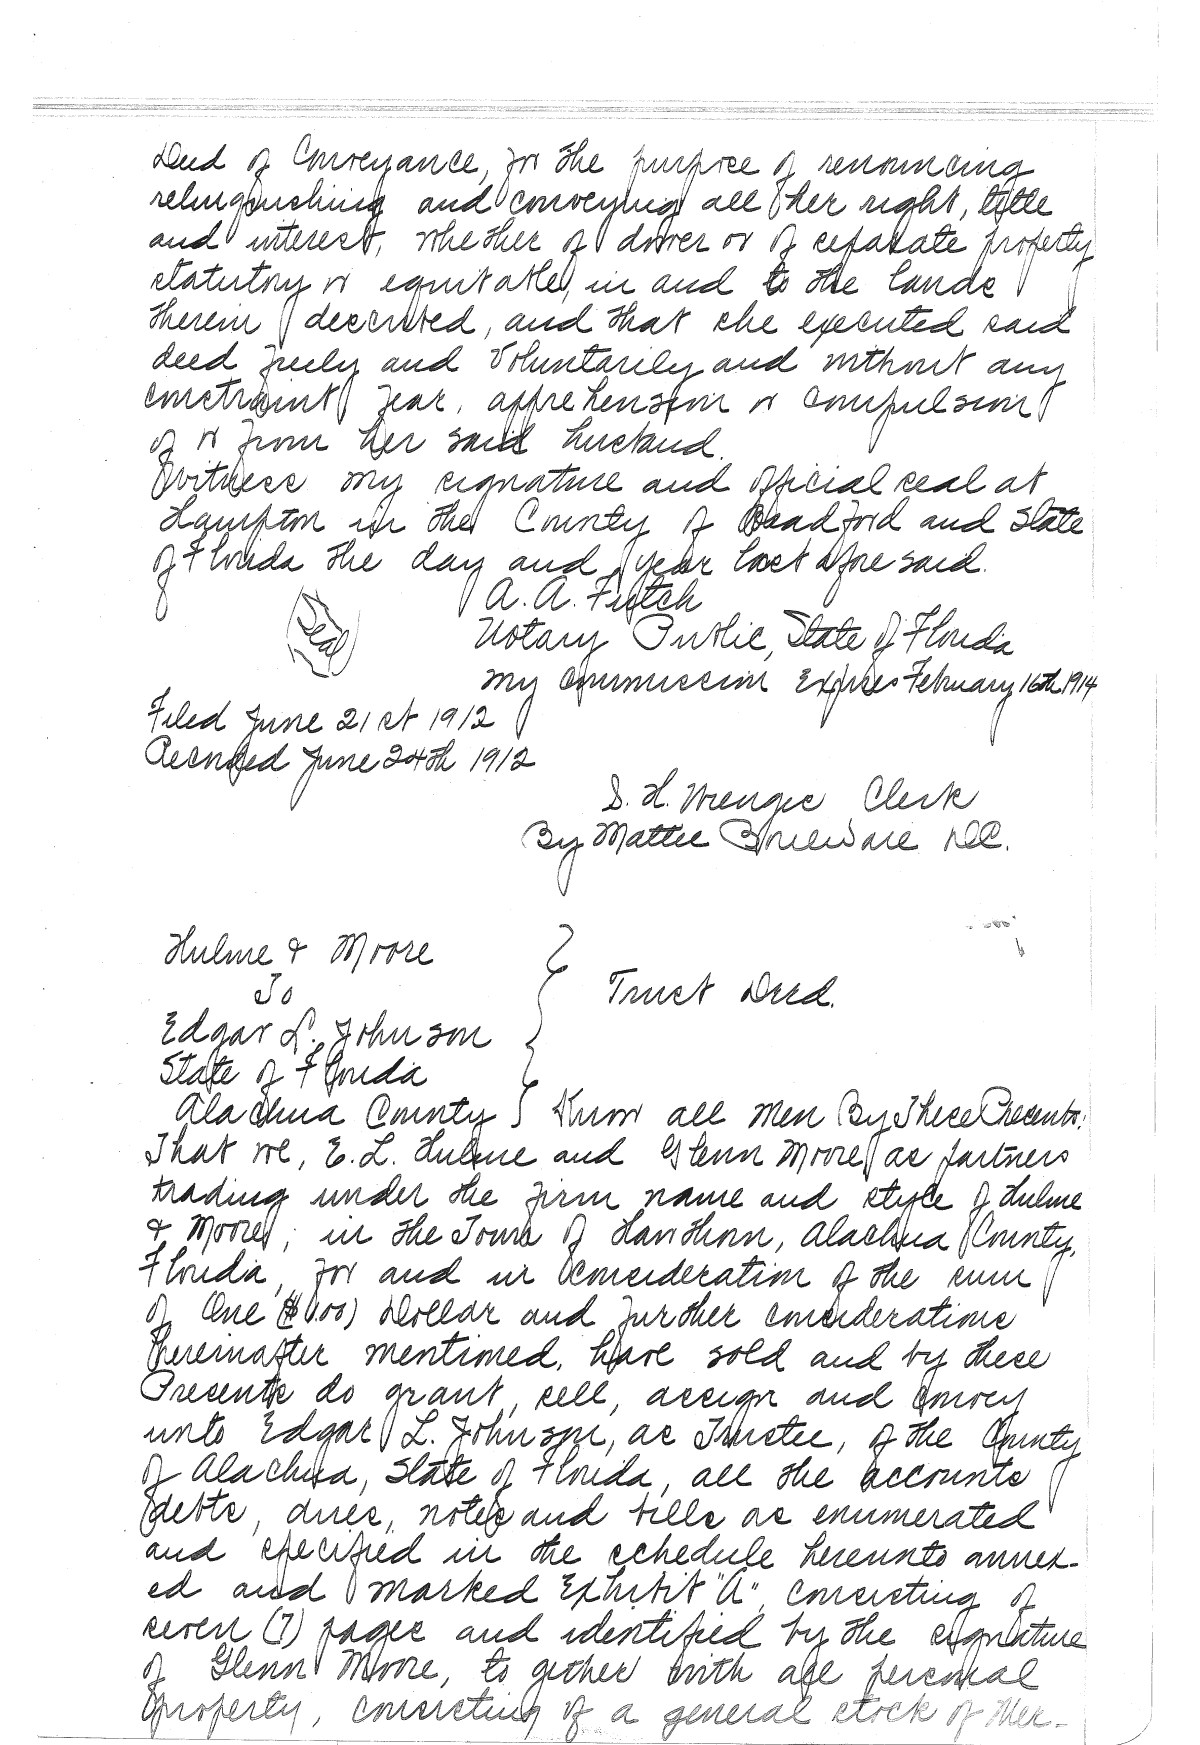 Deed of Conveyance, for the purpose of renouncing
relinquishing and conveying all her right, title
and interest, whether of dower or of separate property
statutory or equitable, in and to the lands
therein described, and that she executed said
deed freely and Voluntarily and without any
constraint, fear, apprehension or compulsion
of or from her said husband.
Witness my signature and official seal at
Hampton in the County of Bradford and State
of Florida the day and year last aforesaid.
A. A. Futch
Seal
Notary Public, State of Florida
My Commission Expires February 16th 1914
Filed June 21st 1912
Recorded June 24th 1912
S. H. Wienges Clerk
By Mattie DC.
Hulme & Moore
To
Trust Deed.
Edgar L. Johnson
State of Florida
Alachua County } Know all Men By These Presents:
That we, E. L. Hulme and Glenn Moore, as partners
trading under the firm name and style of Hulme
& Moore, in the Town of Hawthorn, Alachua County,
Florida, for and in consideration of the sum
of One ($1.00) Dollar and further considerations
hereinafter mentioned, have sold and by these
Presents do grant, sell, assign and convey
unto Edgar L. Johnson, as Trustee, of the County
of Alachua, State of Florida, all the accounts
debts, dues, notes and bills as enumerated
and specified in the schedule hereunto annex-
ed and marked Exhibit "A", consisting of
seven (7) pages and identified by the signature
of Glenn Moore, to gether with all personal
property, consisting of a general stock of Mer-